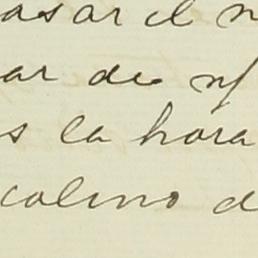 asar el n
ar de
s la hora
colino d